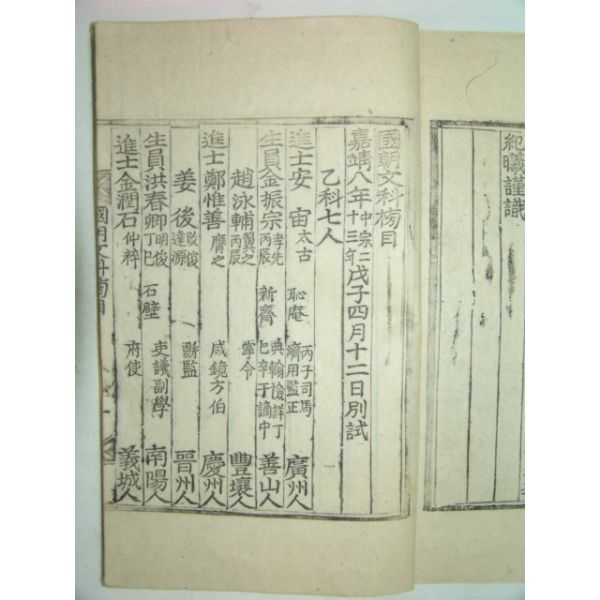 紀曦謹識
國朝文科榜目
嘉靖八年中宗仁十三年戊子四月十二日別試
乙科七人
進士安宙太古 恥庵 丙子司馬濟用監正 廣州人
生員金振宗孝先丙辰 新齋 典翰檢詳丁巳辛于謫中 善山人
趙泳輔翼之丙辰 掌令 豐壤人
進士鄭惟善膺之 咸鏡方伯 慶州人
姜後達源 判監 晉州人
生員洪春卿明俊丁巳 石壁 吏議副學 南陽人
進士金潤石仲粹 府使 義城人